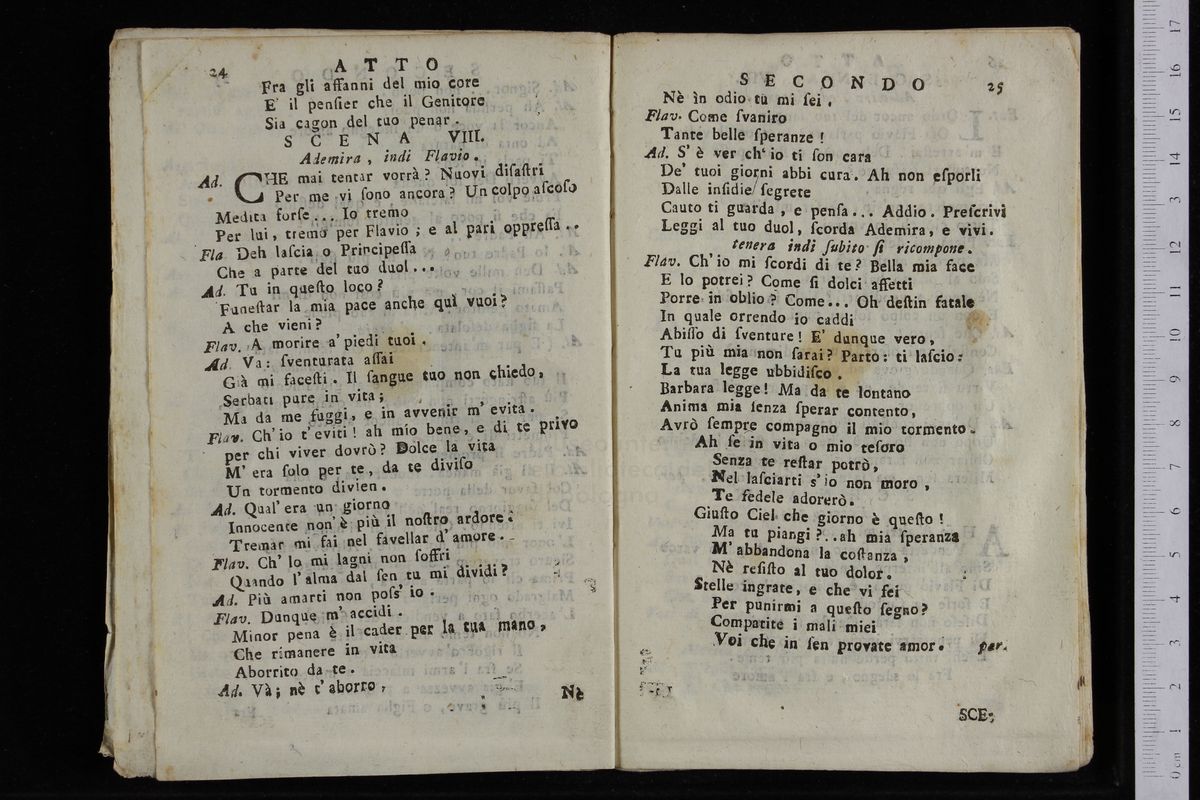 24 ATTO
Fra gli affanni del mio core
E' il pensier che il Genitore
Sia cagon del tuo penar.
SCENA VIII.
Ademira, indi Flavio.
Ad. CHE mai tentar vorrà? Nuovi disastri
Per me vi sono ancora? Un colpo ascoso
Medita forse... Io tremo
Per lui, tremo per Flavio; e al pari oppressa..
Fla. Deh lascia o Principessa
Che a parte del tuo duol...
Ad. Tu in questo loco?
Funestar la mia pace anche quì vuoi?
A che vieni?
Flav. A morire a' piedi tuoi.
Ad. Va: sventurata assai
Già mi facesti. Il sangue tuo non chiedo,
Serbati pure in vita;
Ma da me fuggi, e in avvenir m' evita.
Flav. Ch' io t' eviti! ah mio bene, e di te privo
per chi viver dovrò? Dolce la vita
M' era solo per te, da te diviso
Un tormento divien.
Ad. Qual' era un giorno
Innocente non è più il nostro ardore.
Tremar mi fai nel favellar d' amore.
Flav. Ch' Io mi lagni non soffri
Quando l' alma dal sen tu mi dividi?
Ad. Più amarti non poss' io.
Flav. Dunque m' accidi.
Minor pena è il cader per la tua mano,
Che rimanere in vita
Aborrito da te.
Ad. Và; nè t' aborro,
Nè
SECONDO 25
Nè in odio tu mi sei.
Flav. Come svaniro
Tante belle speranze!
Ad. S' è ver ch' io ti son cara
De' tuoi giorni abbi cura. Ah non esporli
Dalle insidie segrete
Cauto ti guarda, e pensa... Addio. Prescrivi
Leggi al tuo duol, scorda Ademira, e vivi.
tenera indi subito si ricompone.
Flav. Ch' io mi scordi di te? Bella mia face
E lo potrei? Come si dolci affetti
Porre in oblio? Come... Oh destin fatale
In quale orrendo io caddi
Abisso di sventure! E' dunque vero,
Tu più mia non sarai? Parto: ti lascio:
La tua legge ubbidisco.
Barbara legge! Ma da te lontano
Anima mia senza sperar contento,
Avrò sempre compagno il mio tormento.
Ah se in vita o mio tesoro
Senza te restar potrò,
Nel lasciarti s' io non moro,
Te fedele adorerò.
Giusto Ciel che giorno è questo!
Ma tu piangi?..ah mia speranza
M' abbandona la costanza,
Nè resisto al tuo dolor.
Stelle ingrate, e che vi fei
Per punirmi a questo segno?
Compatite i mali miei
Voi che in sen provate amor. par.
SCE-